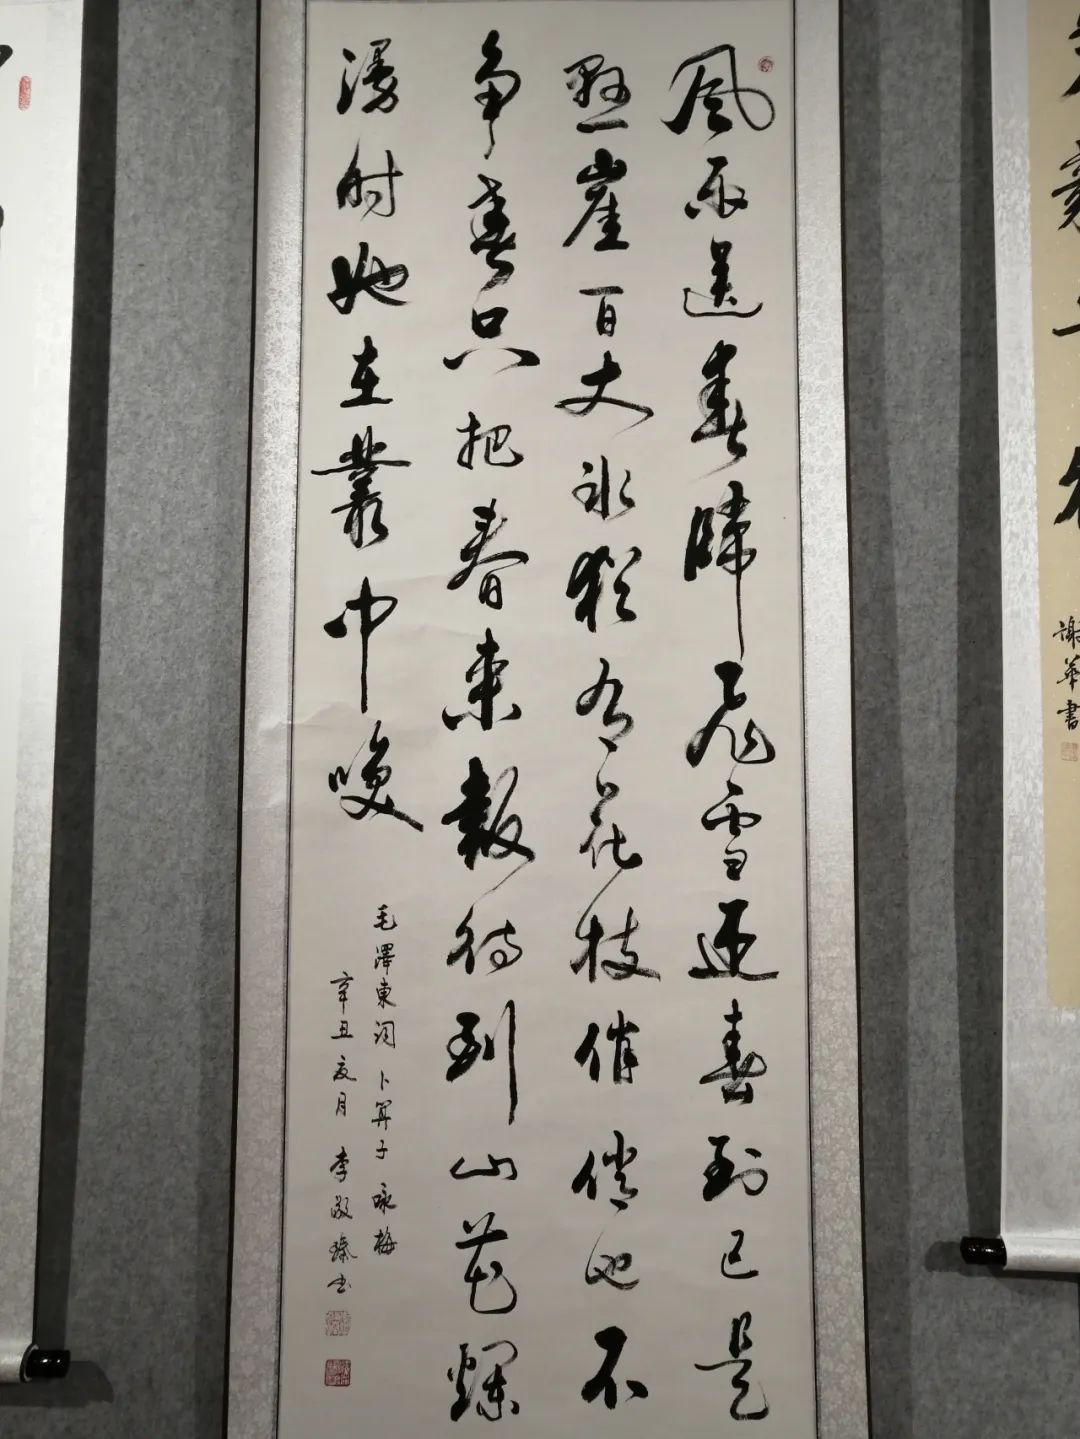 風雨送春歸飛雪迎春到已是
懸崖百丈冰猶有花枝俏俏也不
争春只把春來報待到山花爛
漫时她在叢中笑
毛澤東词卜算子咏梅
辛丑夏月李敬瑧书
謝華書